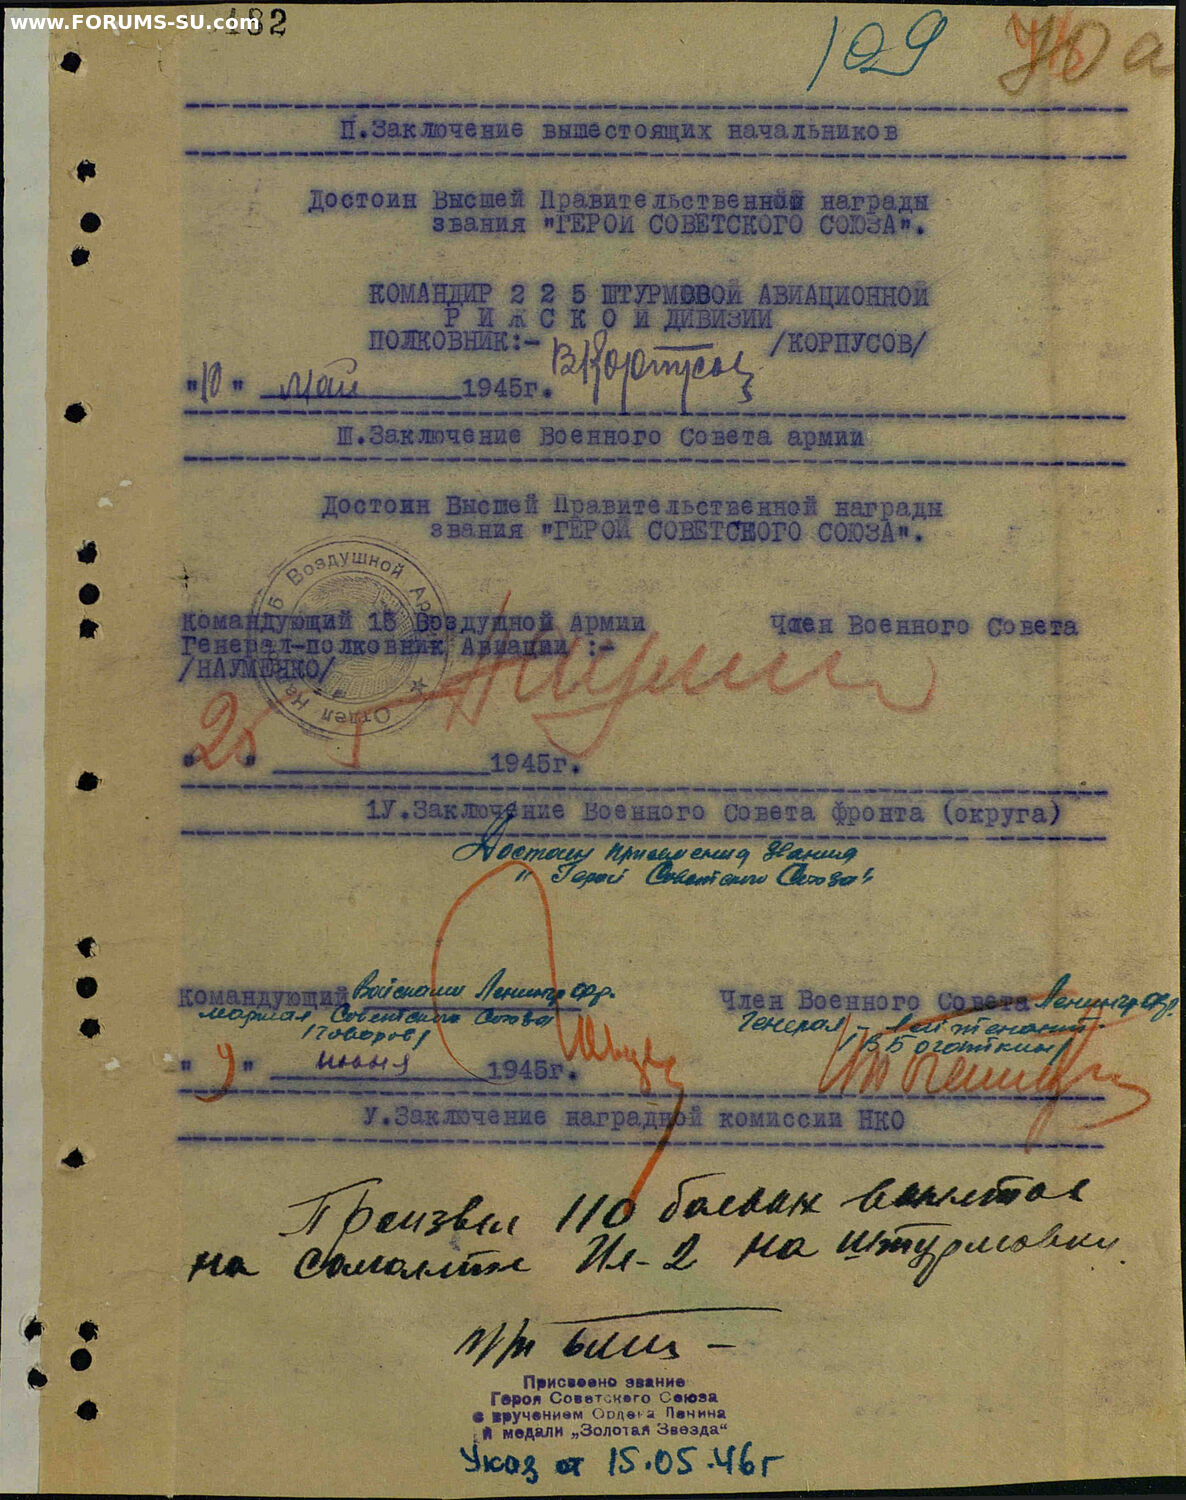 www.FORUMS-SU.com
482
109
70а
П.Заключение вышестоящих начальников
Достоин Высшей Правительственной награды
звания "ГЕРОЙ СОВЕТСКОГО СОЮЗА".
КОМАНДИР 2 2 5 ШТУРМОВОЙ АВИАЦИОННОЙ
Р И Ж С К О Й ДИВИЗИИ
ПОЛКОВНИК:- ВКорпусов /КОРПУСОВ/
"10" май 1945г.
Ш.Заключение Военного Совета армии
Достоин Высшей Правительственной награды
звания "ГЕРОЙ СОВЕТСКОГО СОЮЗА".
Воздушной
Отдел
Командующий 15 Воздушной Армии Член Военного Совета
Генерал-полковник Авиации :-
/НАУМЕНКО/
"25" 5 1945г.
1У.Заключение Военного Совета фронта (округа)
Достоин присвоения звания
"Герой Советского Союза"
Командующий Войсками Ленингр фр. Член Военного Совета Ленингр фр.
Маршал Советского Союза Генерал-лейтенант
/Говоров/ /В Богаткин/
"9" июня 1945г.
У.Заключение наградной комиссии НКО
Произвел 110 боевых вылетов
на самолете Ил-2 на штурмовки.
Присвоено звание
Героя Советского Союза
с вручением Ордена Ленина
и медали „Золотая Звезда“
Указ от 15.05.46г